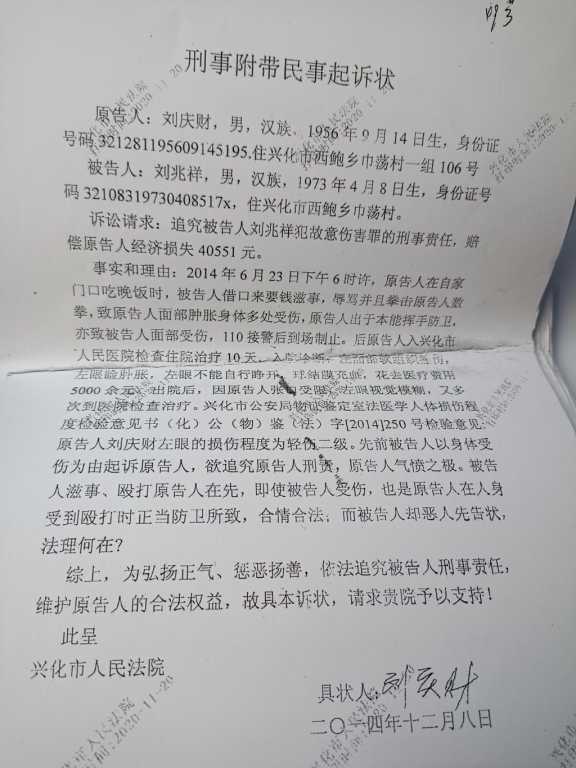 刑事附带民事起诉状
原告人：刘庆财，男，汉族，1956年9月14日生，身份证
号码321281195609145195.住兴化市西鲍乡巾荡村一组106号
被告人：刘兆祥，男，汉族，1973年4月8日生，身份证号
码32108319730408517x，住兴化市西鲍乡巾荡村。
诉讼请求：追究被告人刘兆祥犯故意伤害罪的刑事责任，赔
偿原告人经济损失40551元。
事实和理由：2014年6月23日下午6时许，原告人在自家
门口吃晚饭时，被告人借口来要钱滋事，辱骂并且拳击原告人数
拳，致原告人面部肿胀身体多处受伤，原告人出于本能挥手防卫，
亦致被告人面部受伤，110接警后到场制止。后原告人入兴化市
人民医院检查住院治疗10天，入院诊断：软组织
左眼睑肿胀，左眼不能自行睁开，球结膜充血，花去医疗费用
5000余元。出院后，因原告人张口受限、左眼视觉模糊，又多
次到医院检查治疗。兴化市公安局物证鉴定室法医学人体损伤程
度检验意见书（化）公（物）鉴（法）字[2014]250号检验意见：
原告人刘庆财左眼的损伤程度为轻伤二级。先前被告人以身体受
伤为由起诉原告人，欲追究原告人刑责，原告人气愤之极。被告
人滋事、殴打原告人在先，即使被告人受伤，也是原告人在人身
受到殴打时正当防卫所致，合情合法，而被告人却恶人先告状，
法理何在？
综上，为弘扬正气、惩恶扬善，依法追究被告人刑事责任，
维护原告人的合法权益，故具本诉状，请求贵院予以支持！
此呈
兴化市人民法院
具状人：刘庆财
二〇一四年十二月八日
兴化市人民法院
时间:2020-11-20